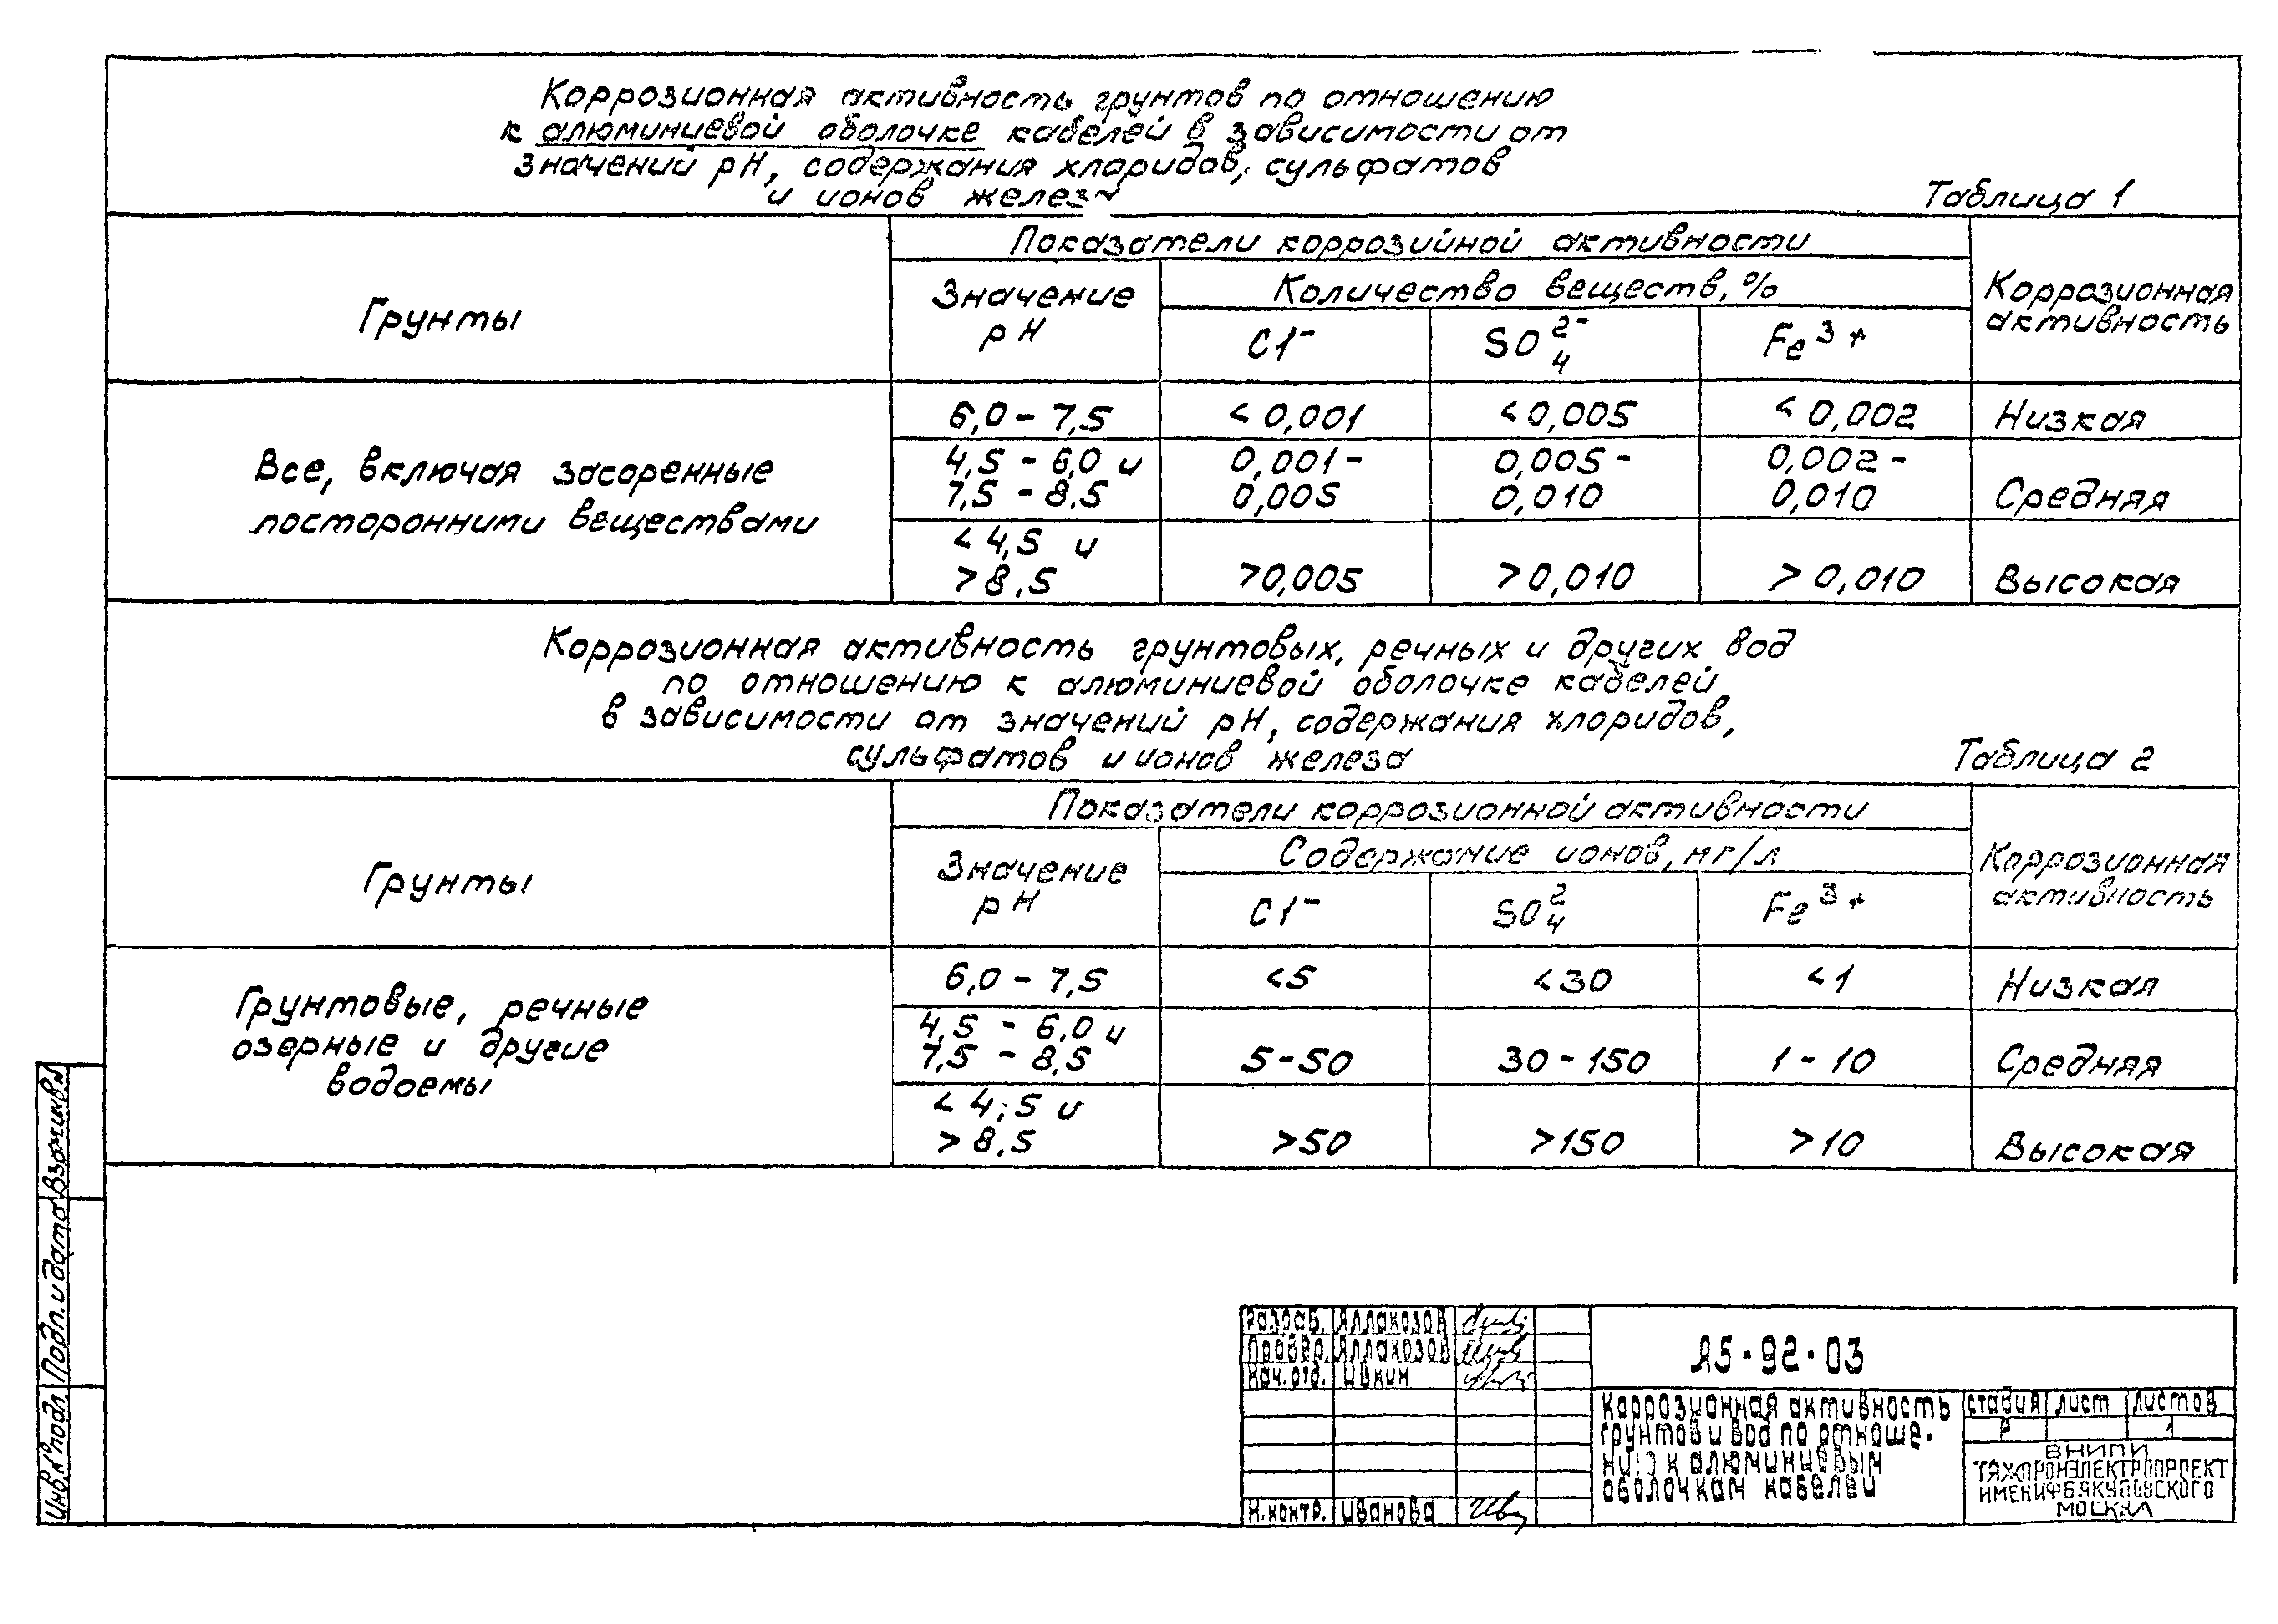 Коррозионная активность грунтов по отношению
к алюминиевой оболочке кабелей в зависимости от
значений pH, содержания хлоридов, сульфатов
и ионов железа
Таблица 1
Грунты
Показатели коррозийной активности
Коррозионная
активность
Значение
pH
Количество веществ, %
Cl⁻
SO₄²⁻
Fe³⁺
Все, включая засоренные
посторонними веществами
6,0 - 7,5
< 0,001
< 0,005
< 0,002
Низкая
4,5 - 6,0 и
7,5 - 8,5
0,001 -
0,005
0,005 -
0,010
0,002 -
0,010
Средняя
< 4,5 и
> 8,5
>0,005
>0,010
> 0,010
Высокая
Коррозионная активность грунтовых, речных и других вод
по отношению к алюминиевой оболочке кабелей
в зависимости от значений pH, содержания хлоридов,
сульфатов и ионов железа
Таблица 2
Грунты
Показатели коррозионной активности
Коррозионная
активность
Значение
pH
Содержание ионов, мг/л
Cl⁻
SO₄²
Fe³⁺
Грунтовые, речные
озерные и другие
водоемы
6,0 - 7,5
<5
<30
<1
Низкая
4,5 - 6,0 и
7,5 - 8,5
5-50
30-150
1-10
Средняя
< 4,5 и
> 8,5
>50
>150
>10
Высокая
Взам.инв.№
Подп. и дата
Инв.№ подл.
Разраб. Аллакозов
Провер. Аллакозов
Нач. отд. Ивкин
Н.контр. Иванова
А5-92-03
Коррозионная активность
грунтов и вод по отноше-
нию к алюминиевым
оболочкам кабелей
стадия лист листов
Р 1
ВНИПИ
ТЯЖПРОМЭЛЕКТРОПРОЕКТ
ИМЕНИ Ф.Б.ЯКУБОВСКОГО
МОСКВА